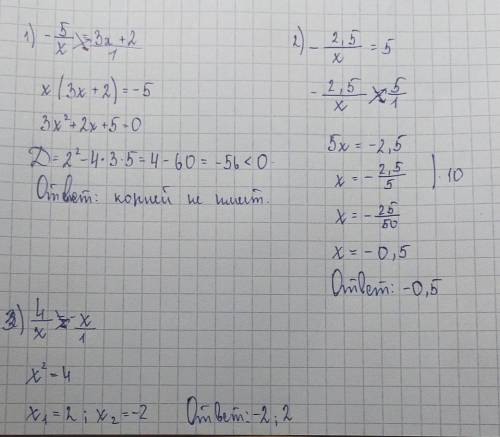 1) -5/x = 3x+2/1
x(3x+2)=-5
3x²+2x+5=0
D=2²-4·3·5=4-60=-56<0.
Ответ: корней не имеет.
2) -2,5/x = 5
-2,5/x = 5/1
5x=-2,5
x=-2,5/5 |·10
x=-25/50
x=-0,5
Ответ: -0,5
3) 4/x = x/1
x²=4
x₁=2; x₂=-2 Ответ: -2; 2